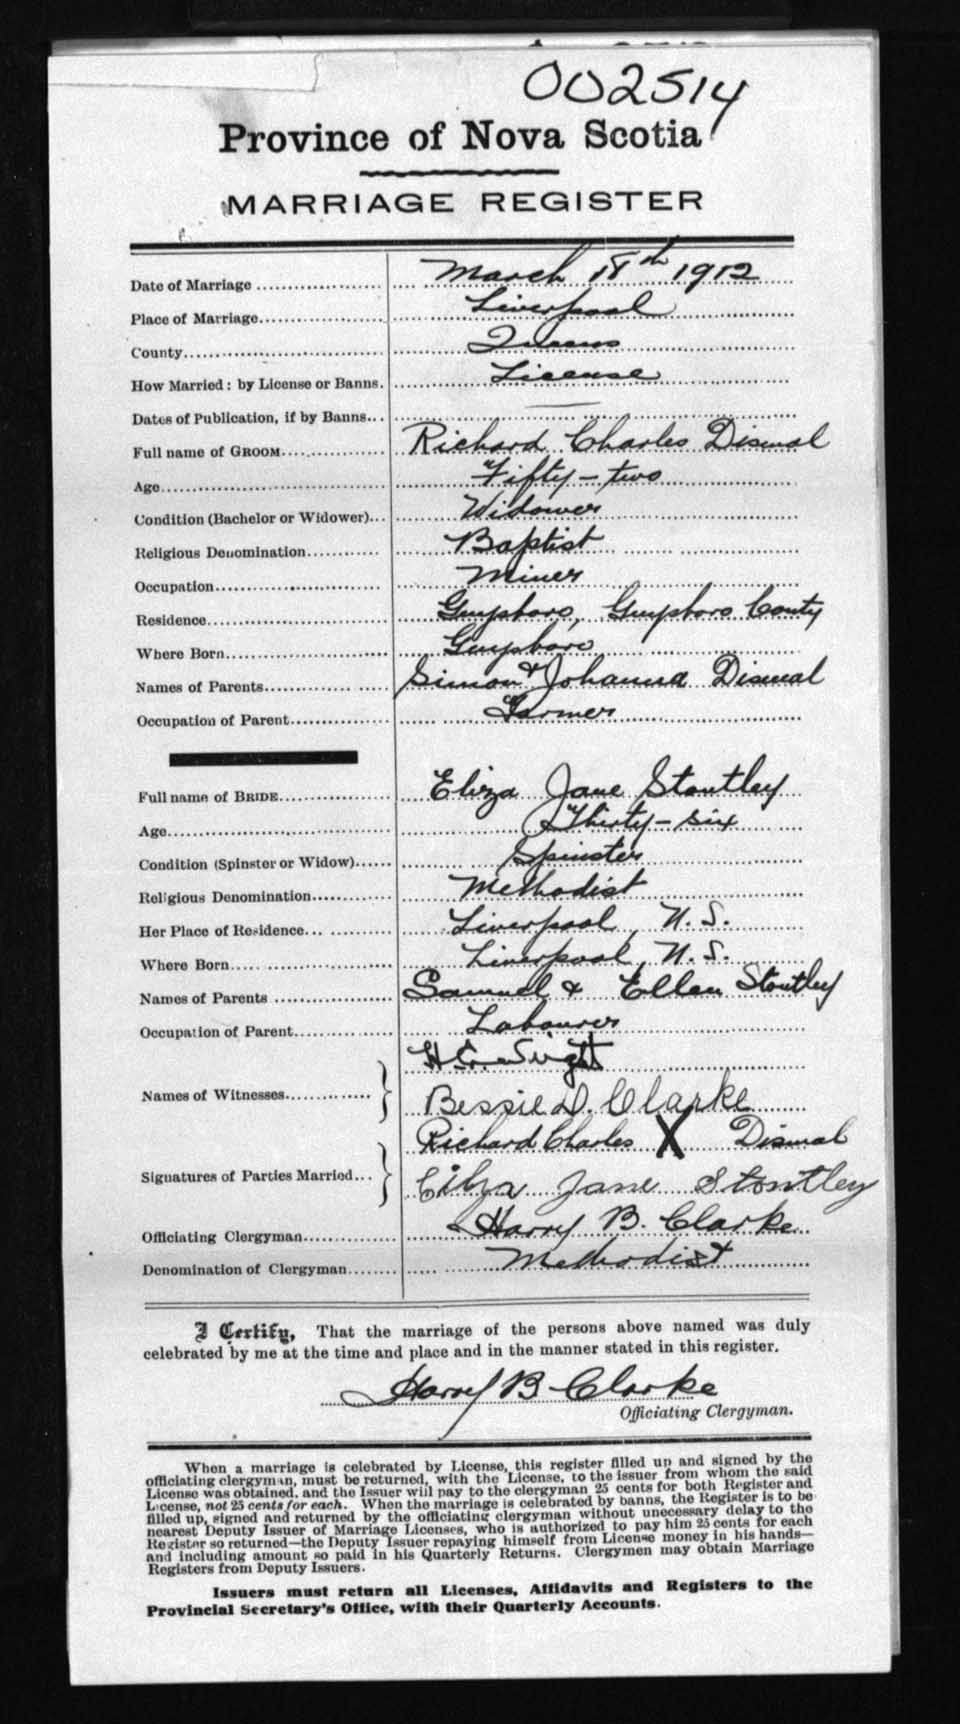 002514
Province of Nova Scotia
MARRIAGE REGISTER
Date of Marriage .................... March 18th 1912
Place of Marriage.................... Liverpool
County.................... Queens
How Married: by License or Banns. License
Dates of Publication, if by Banns... —
Full name of GROOM.................... Richard Charles Dismal
Age.................... Fifty-two
Condition (Bachelor or Widower)... Widower
Religious Denomination............ Baptist
Occupation.................... Miner
Residence.................... Guysboro, Guysboro County
Where Born.................... Guysboro
Names of Parents.................... Simon & Johanna Dismal
Occupation of Parent............... Farmer
Full name of BRIDE.................... Eliza Jane Stoutley
Age.................... Thirty-six
Condition (Spinster or Widow)...... Spinster
Religious Denomination............ Methodist
Her Place of Residence... ............ Liverpool, N. S.
Where Born.................... Liverpool, N. S.
Names of Parents .................... Samuel & Ellen Stoutley
Occupation of Parent............... Labourer
H.
Names of Witnesses.............. Bessie D. Clarke
Richard Charles X Dismal
Signatures of Parties Married... Eliza Jane Stoutley
Officiating Clergyman............... Harry B. Clarke
Denomination of Clergyman........ Methodist
I Certify, That the marriage of the persons above named was duly
celebrated by me at the time and place and in the manner stated in this register.
Harry B Clarke
Officiating Clergyman.
When a marriage is celebrated by License, this register filled up and signed by the
officiating clergyman, must be returned, with the License, to the issuer from whom the said
License was obtained, and the Issuer will pay to the clergyman 25 cents for both Register and
License, not 25 cents for each. When the marriage is celebrated by banns, the Register is to be
filled up, signed and returned by the officiating clergyman without unecessary delay to the
nearest Deputy Issuer of Marriage Licenses, who is authorized to pay him 25 cents for each
Register so returned—the Deputy Issuer repaying himself from License money in his hands—
and including amount so paid in his Quarterly Returns. Clergymen may obtain Marriage
Registers from Deputy Issuers.
Issuers must return all Licenses, Affidavits and Registers to the
Provincial Secretary's Office, with their Quarterly Accounts.